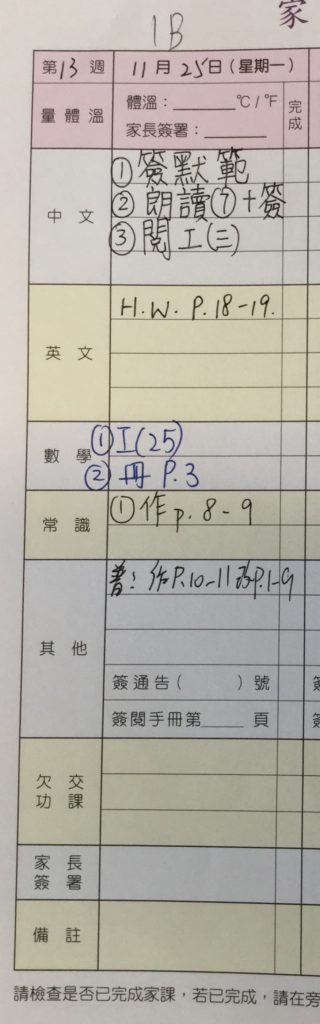 家
1B
第13週 11月25日(星期一)
量體溫 體溫:______℃/℉ 完成
家長簽署:______
中文 ①簽默範
②朗讀⑦+簽
③閱工(三)
英文 H.W. P.18-19.
數學 ①工(25)
②冊 P.3
常識 ①作p.8-9
其他 普:作P.10-11 P.1-9
簽通告( )號
簽閱手冊第____頁
欠交功課
家長簽署
備註
請檢查是否已完成家課,若已完成,請在旁